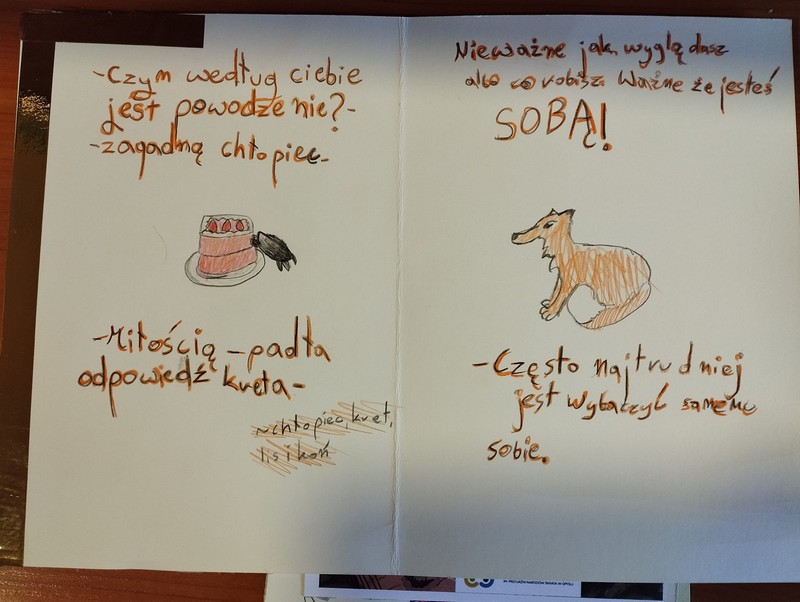 -Czym według ciebie
jest powodzenie?-
-zagadną chłopiec-
-Miłością -padła
odpowiedź kreta-
"chłopiec, kret,
lis i koń
Nieważne jak wyglądasz
albo co robisz. Ważne że jesteś
SOBĄ!
-Często najtrudniej
jest wybaczyć samemu
sobie.